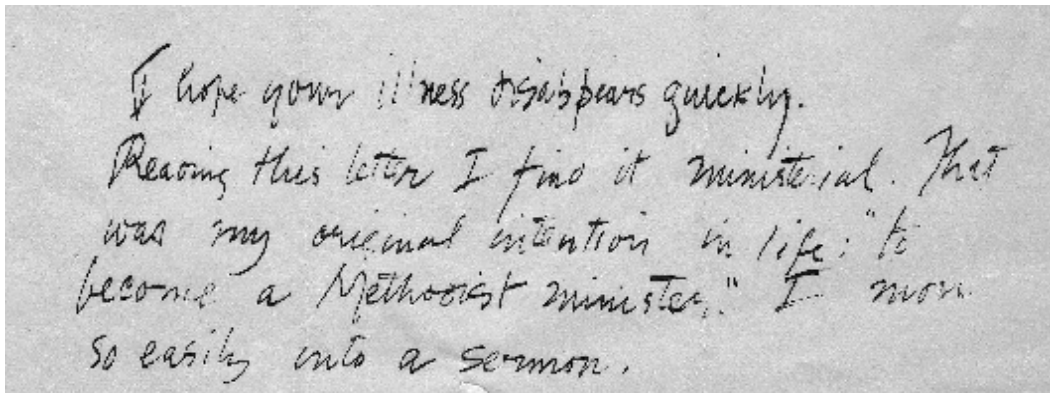 I hope your illness disappears quickly.
Reading this letter I find it ministerial. That
was my original intention in life: "to
become a Methodist minister." I move
so easily into a sermon.